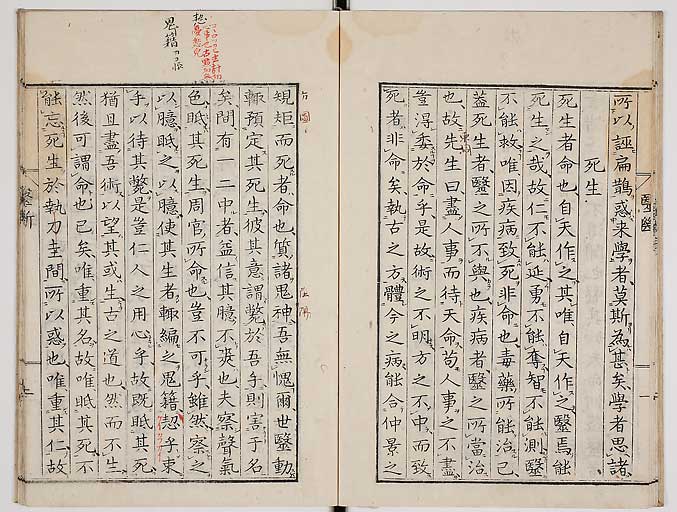 所以誣扁鵲惑来學者莫斯為甚矣學者思諸
死生
死生者命也自天作之其唯自天作之毉焉能
死生之哉故仁不能延勇不能奪智不能測毉
不能救唯因疾病致死非命也毒藥所能治已
蓋死生者毉之所不與也疾病者毉之所當治
也故先生曰盡人事而待天命苟人事之不盡
豈得委於命乎是故術之不明方之不中而致
死者非命矣執古之方體今之病能合仲景之
醫斷
規矩而死者命也質諸鬼神吾無愧爾世毉動
輙預定其死生彼其意謂斃於吾手則害于名
矣間有一二中者益信其臆不爽也夫察聲氣
色眂其死生周官所命也豈不可乎雖然察之
以臆眂之以臆使其生者輙編之鬼籍恝乎束
手以待其斃是豈仁人之用心乎故既眂其死
猶且盡吾術以望其或生古之道也然而不生
然後可謂命也已矣唯重其名故唯眂其死不
能忘死生於執刀圭間所以惑也唯重其仁故
鬼籍